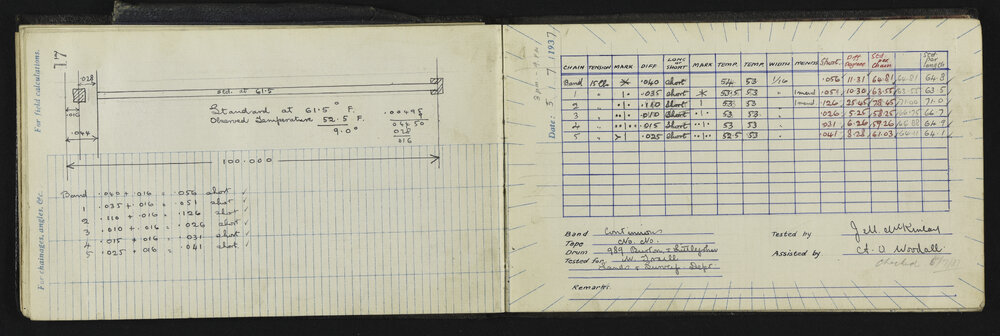 For field calculations.
For chainages, angles, &c.
.028
Std. at 61.5
Standard at 61.5° F.
Observed Temperature 52.5 F.
9.0°
.028
.016
.044
100.000
Band .040 + .016 = .056 short ✓
1 .035 + .016 = .051 short ✓
2 .110 + .016 = .126 short ✓
3 .010 + .016 = .026 short ✓
4 .015 + .016 = .031 short ✓
5 .025 + .016 = .041 short ✓
Date: 5. 1. 7. 1937.
CHAIN TENSION MARK DIFF LONG or SHORT MARK TEMP. TEMP. WIDTH MENDS Short. Diff Degree Std. per Chain Std. per length
Band 15 lb .040 Short 54 53 1/16 .056 11.31 64.81 64.81 64.8
1 " .035 Short 53.5 53 1 mend .051 10.30 63.55 63.55 63.5
2 " .110 Short 53 53 1 mend .126 25.45 78.45 71.00 71.0
3 " .010 Short 53 53 .026 5.25 58.25 66.75 66.7
4 " .015 Short 53 53 .031 6.26 59.26 64.9
5 " .025 Short 52.5 53 .041 8.28 61.03 64.1
Band Continuous
Tape No. No.
Drum 989
Tested for
Lands & Survey Dept.
Remarks:
Tested by
Assisted by A. V. Woodall
Checked